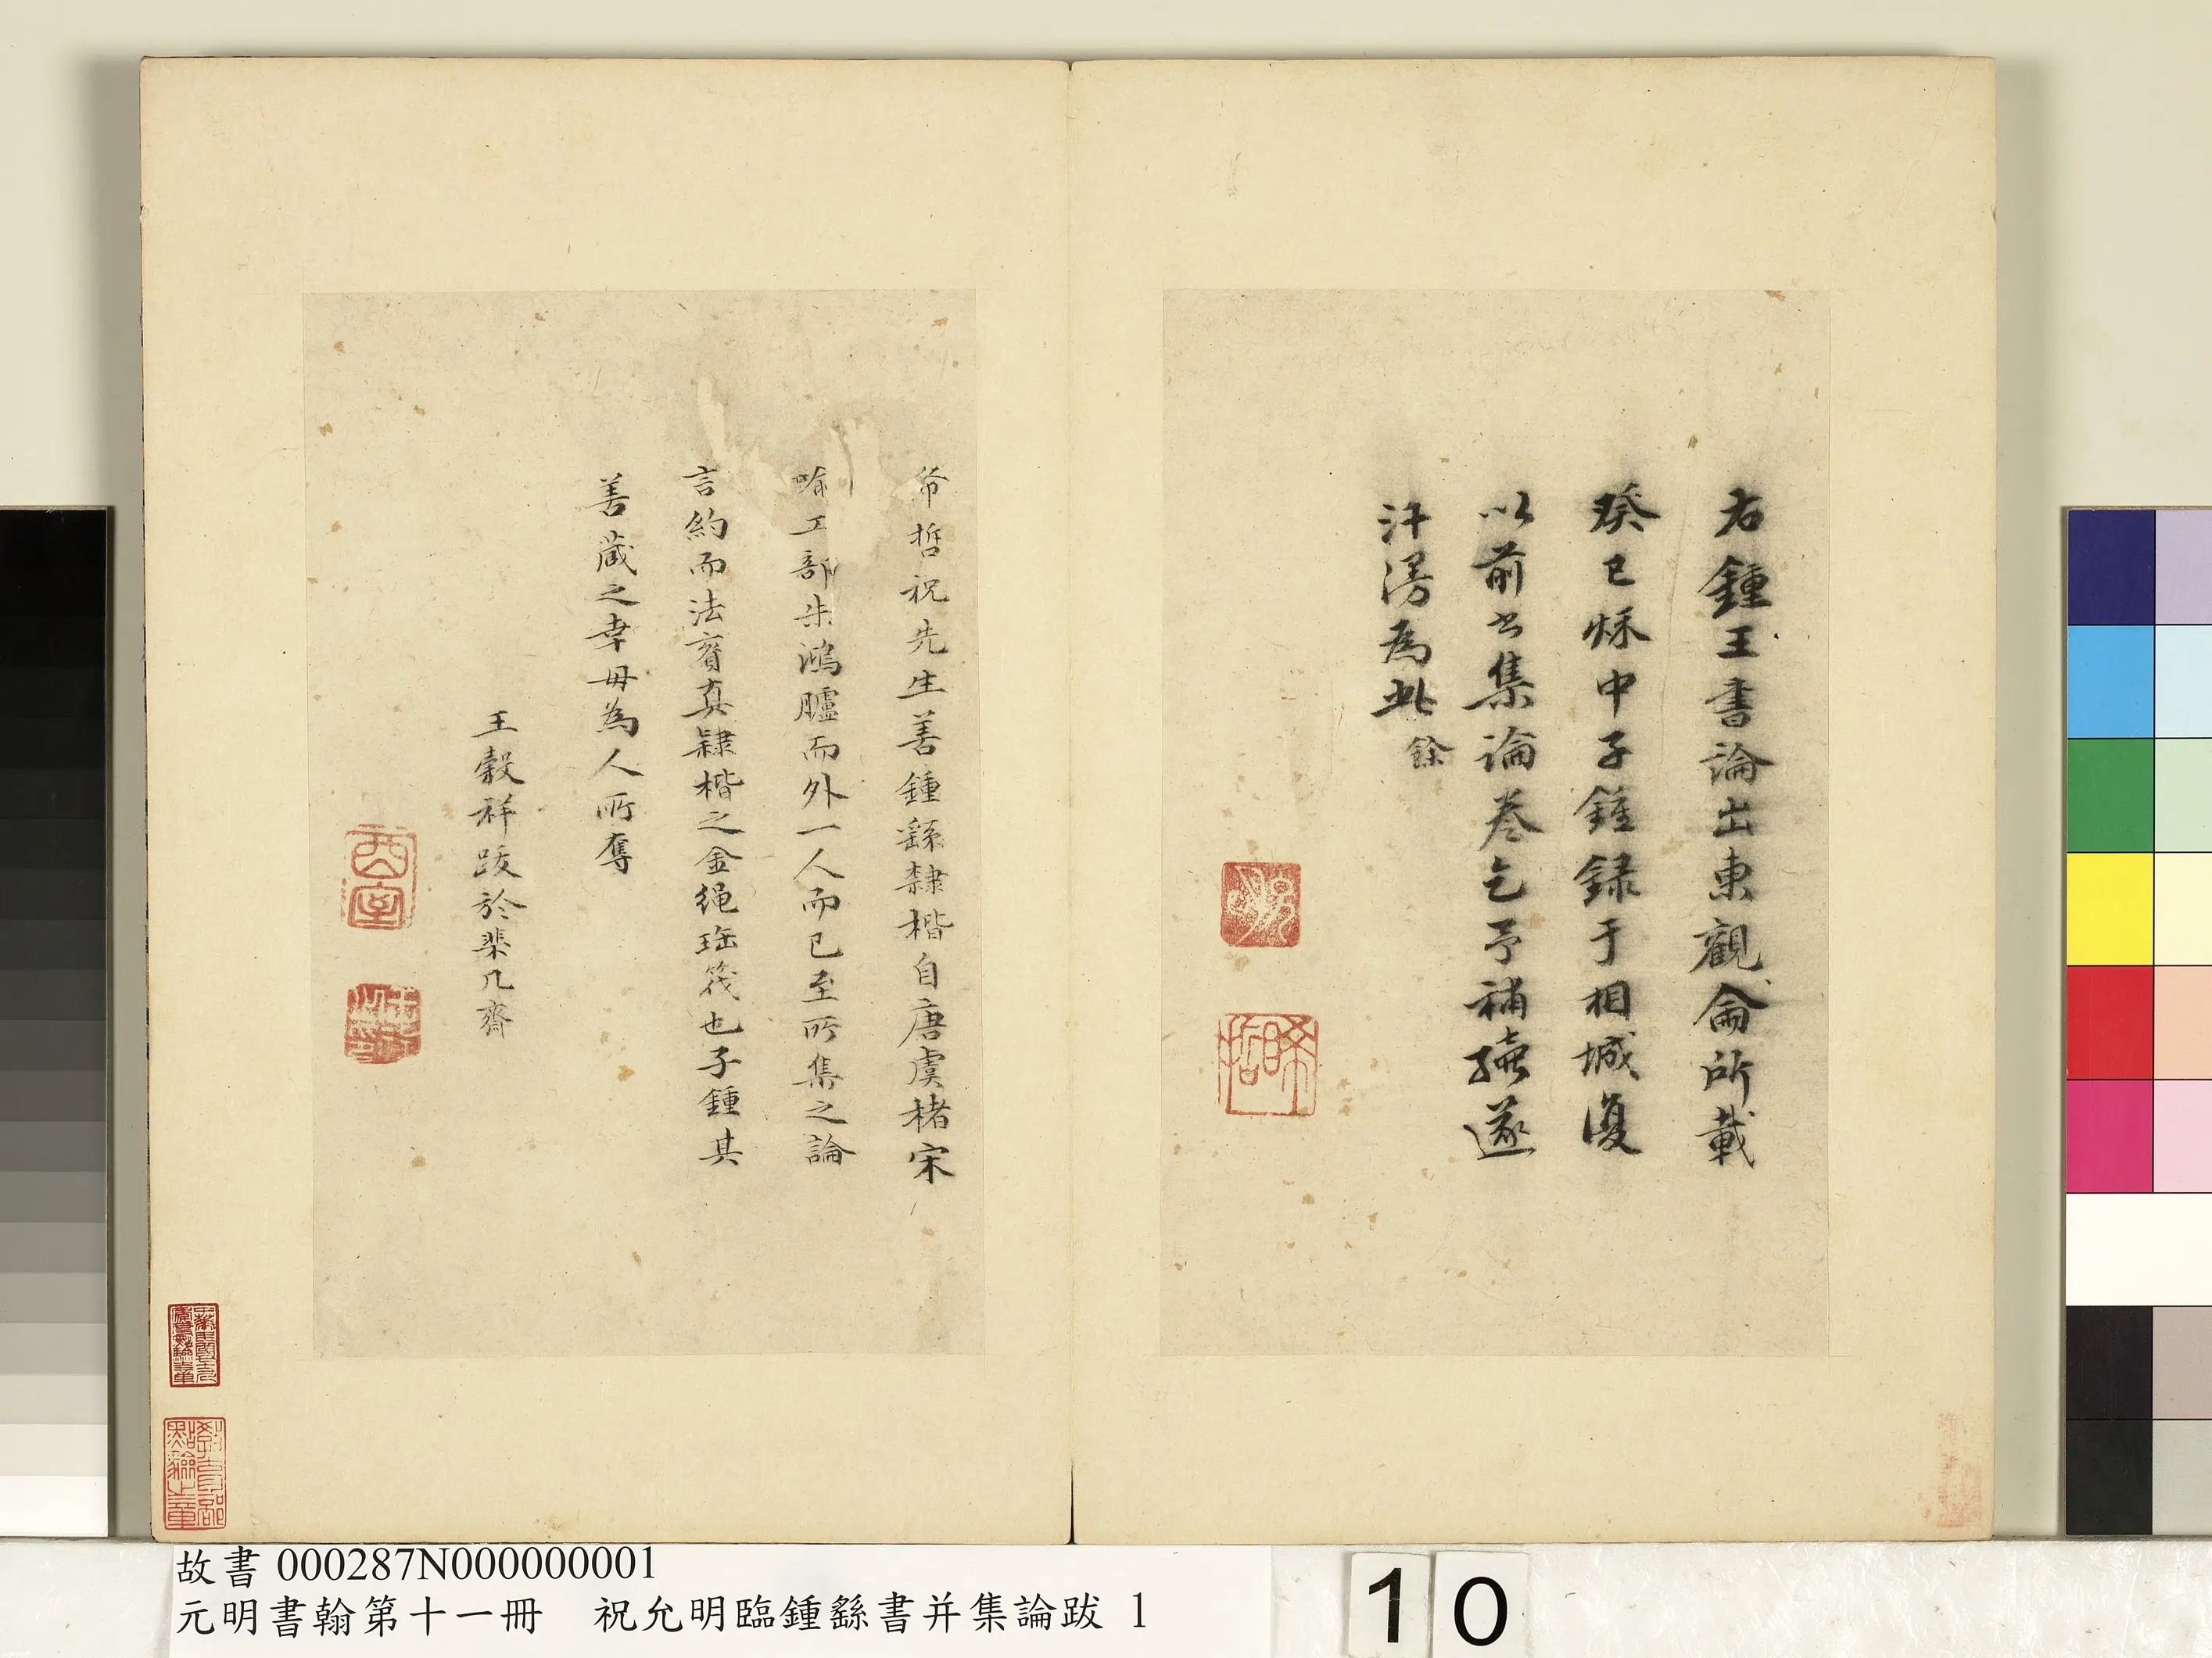 右鍾王書論出東觀侖所載
癸巳秌中子鍾録于相城復
以前書集論卷乞予補續遂
汗漫為此
餘
希哲祝先生善鍾繇隸楷自唐虞楮宋
喻工部朱鴻臚而外一人而已至所集之論
言約而法賅真隸楷之金繩寶筏也子鍾其
善藏之幸毋為人所奪
王穀祥跋於棐几齋
酉室
希哲
故書 000287N000000001
元明書翰第十一冊 祝允明臨鍾繇書并集論跋 1
10